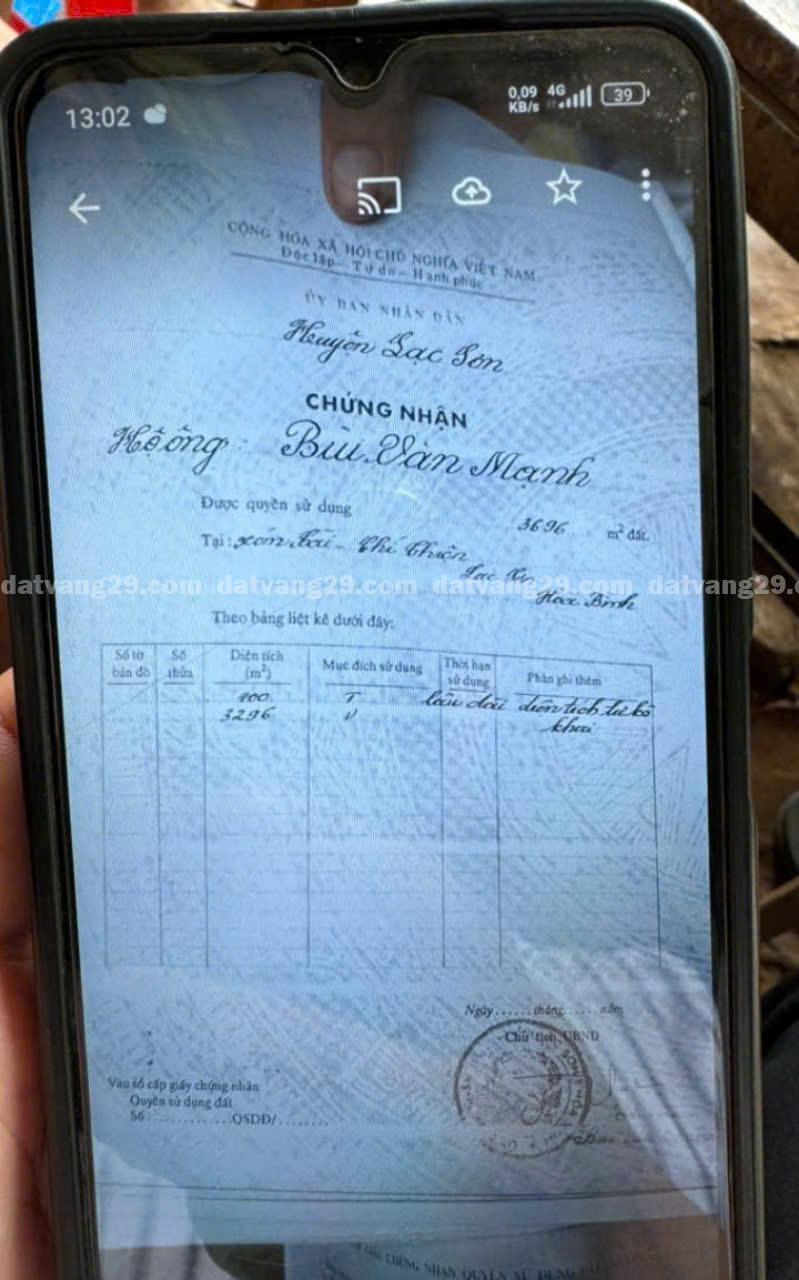 13:02
0,09 KB/s 4G 39
CỘNG HÒA XÃ HỘI CHỦ NGHĨA VIỆT NAM
Độc lập - Tự do - Hạnh phúc
ỦY BAN NHÂN DÂN
Huyện Lạc Sơn
CHỨNG NHẬN
Hộ ông: Bùi Văn Mạnh
Được quyền sử dụng 3696 m² đất.
Tại: xóm - Chí Thiện
datvang29.com datvang29.com datvang29.com datvang29.c
Hòa Bình
Theo bảng liệt kê dưới đây:
Số tờ bản đồ Số thửa Diện tích (m²) Mục đích sử dụng Thời hạn sử dụng Phần ghi thêm
400 T lâu dài diện tích tự kê
3296 V khai
Ngày......tháng......năm
Chủ tịch UBND
Vào sổ cấp giấy chứng nhận
Quyền sử dụng đất
Số..............QSDĐ/........
CHỨNG NHẬN QUYỀN SỬ DỤNG